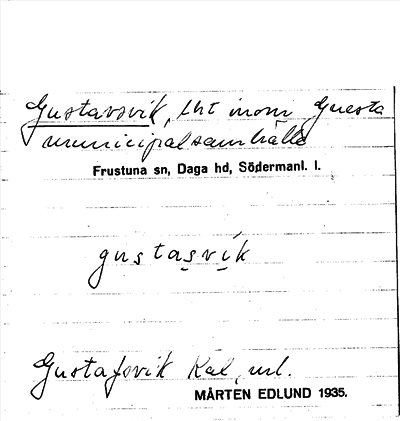 Gustavsvik, lht inom Gnesta
municipalsamhälle
Frustuna sn, Daga hd, Södermanl. l.
gustasvik
Gustafsvik Kal, url.
MÅRTEN EDLUND 1935.